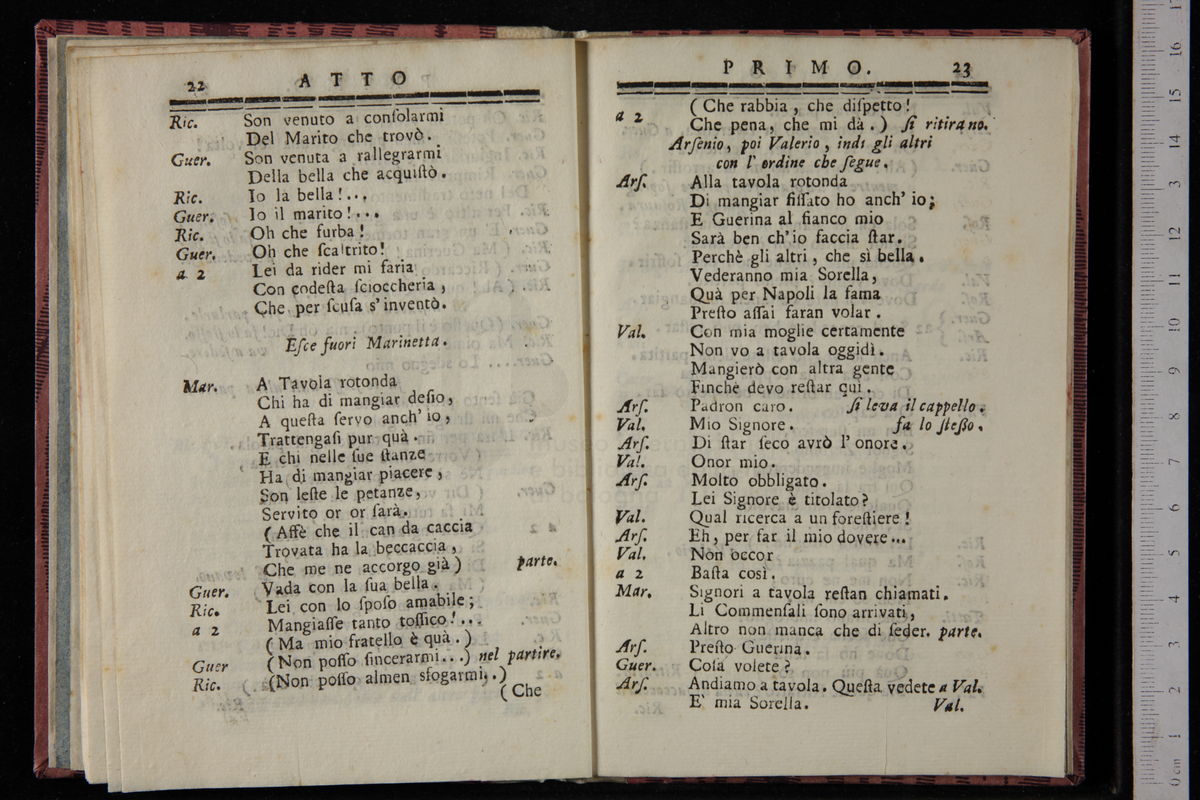 22 ATTO
Ric. Son venuto a conſolarmi
Del Marito che trovò.
Guer. Son venuta a rallegrarmi
Della bella che acquiſtò.
Ric. Io la bella!...
Guer. Io il marito!...
Ric. Oh che furba!
Guer. Oh che ſcaltrito!
a 2 Lei da rider mi faria
Con codeſta ſcioccheria,
Che per ſcuſa s'inventò.
Eſce fuori Marinetta.
Mar. A Tavola rotonda
Chi ha di mangiar deſio,
A queſta ſervo anch' io,
Trattengaſi pur quà.
E chi nelle ſue ſtanze
Ha di mangiar piacere,
Son leſte le petanze,
Servito or or ſarà.
(Affè che il can da caccia
Trovata ha la beccaccia,
Che me ne accorgo già) parte.
Guer. Vada con la ſua bella.
Ric. Lei con lo ſpoſo amabile;
a 2 Mangiaſſe tanto toſſico!...
(Ma mio fratello è quà.)
Guer (Non poſſo ſincerarmi...) nel partire.
Ric. (Non poſſo almen sfogarmi..)
(Che
PRIMO. 23
a 2 (Che rabbia, che diſpetto!
Che pena, che mi dà.) ſi ritirano.
Arſenio, poi Valerio, indi gli altri
con l' ordine che ſegue.
Arſ. Alla tavola rotonda
Di mangiar fiſſato ho anch' io;
E Guerina al fianco mio
Sarà ben ch'io faccia ſtar.
Perchè gli altri, che sì bella.
Vederanno mia Sorella,
Quà per Napoli la fama
Preſto aſſai faran volar.
Val. Con mia moglie certamente
Non vo a tavola oggidì.
Mangierò con altra gente
Finchè devo reſtar quì.
Arſ. Padron caro. ſi leva il cappello.
Val. Mio Signore. fa lo ſteſſo.
Arſ. Di ſtar ſeco avrò l' onore.
Val. Onor mio.
Arſ. Molto obbligato.
Lei Signore è titolato?
Val. Qual ricerca a un foreſtiere!
Arſ. Eh, per far il mio dovere...
Val. Non occor
a 2 Baſta così.
Mar. Signori a tavola reſtan chiamati.
Li Commenſali ſono arrivati,
Altro non manca che di ſeder. parte.
Arſ. Preſto Guerina.
Guer. Coſa volete?
Arſ. Andiamo a tavola. Queſta vedete a Val.
E' mia Sorella. Val.